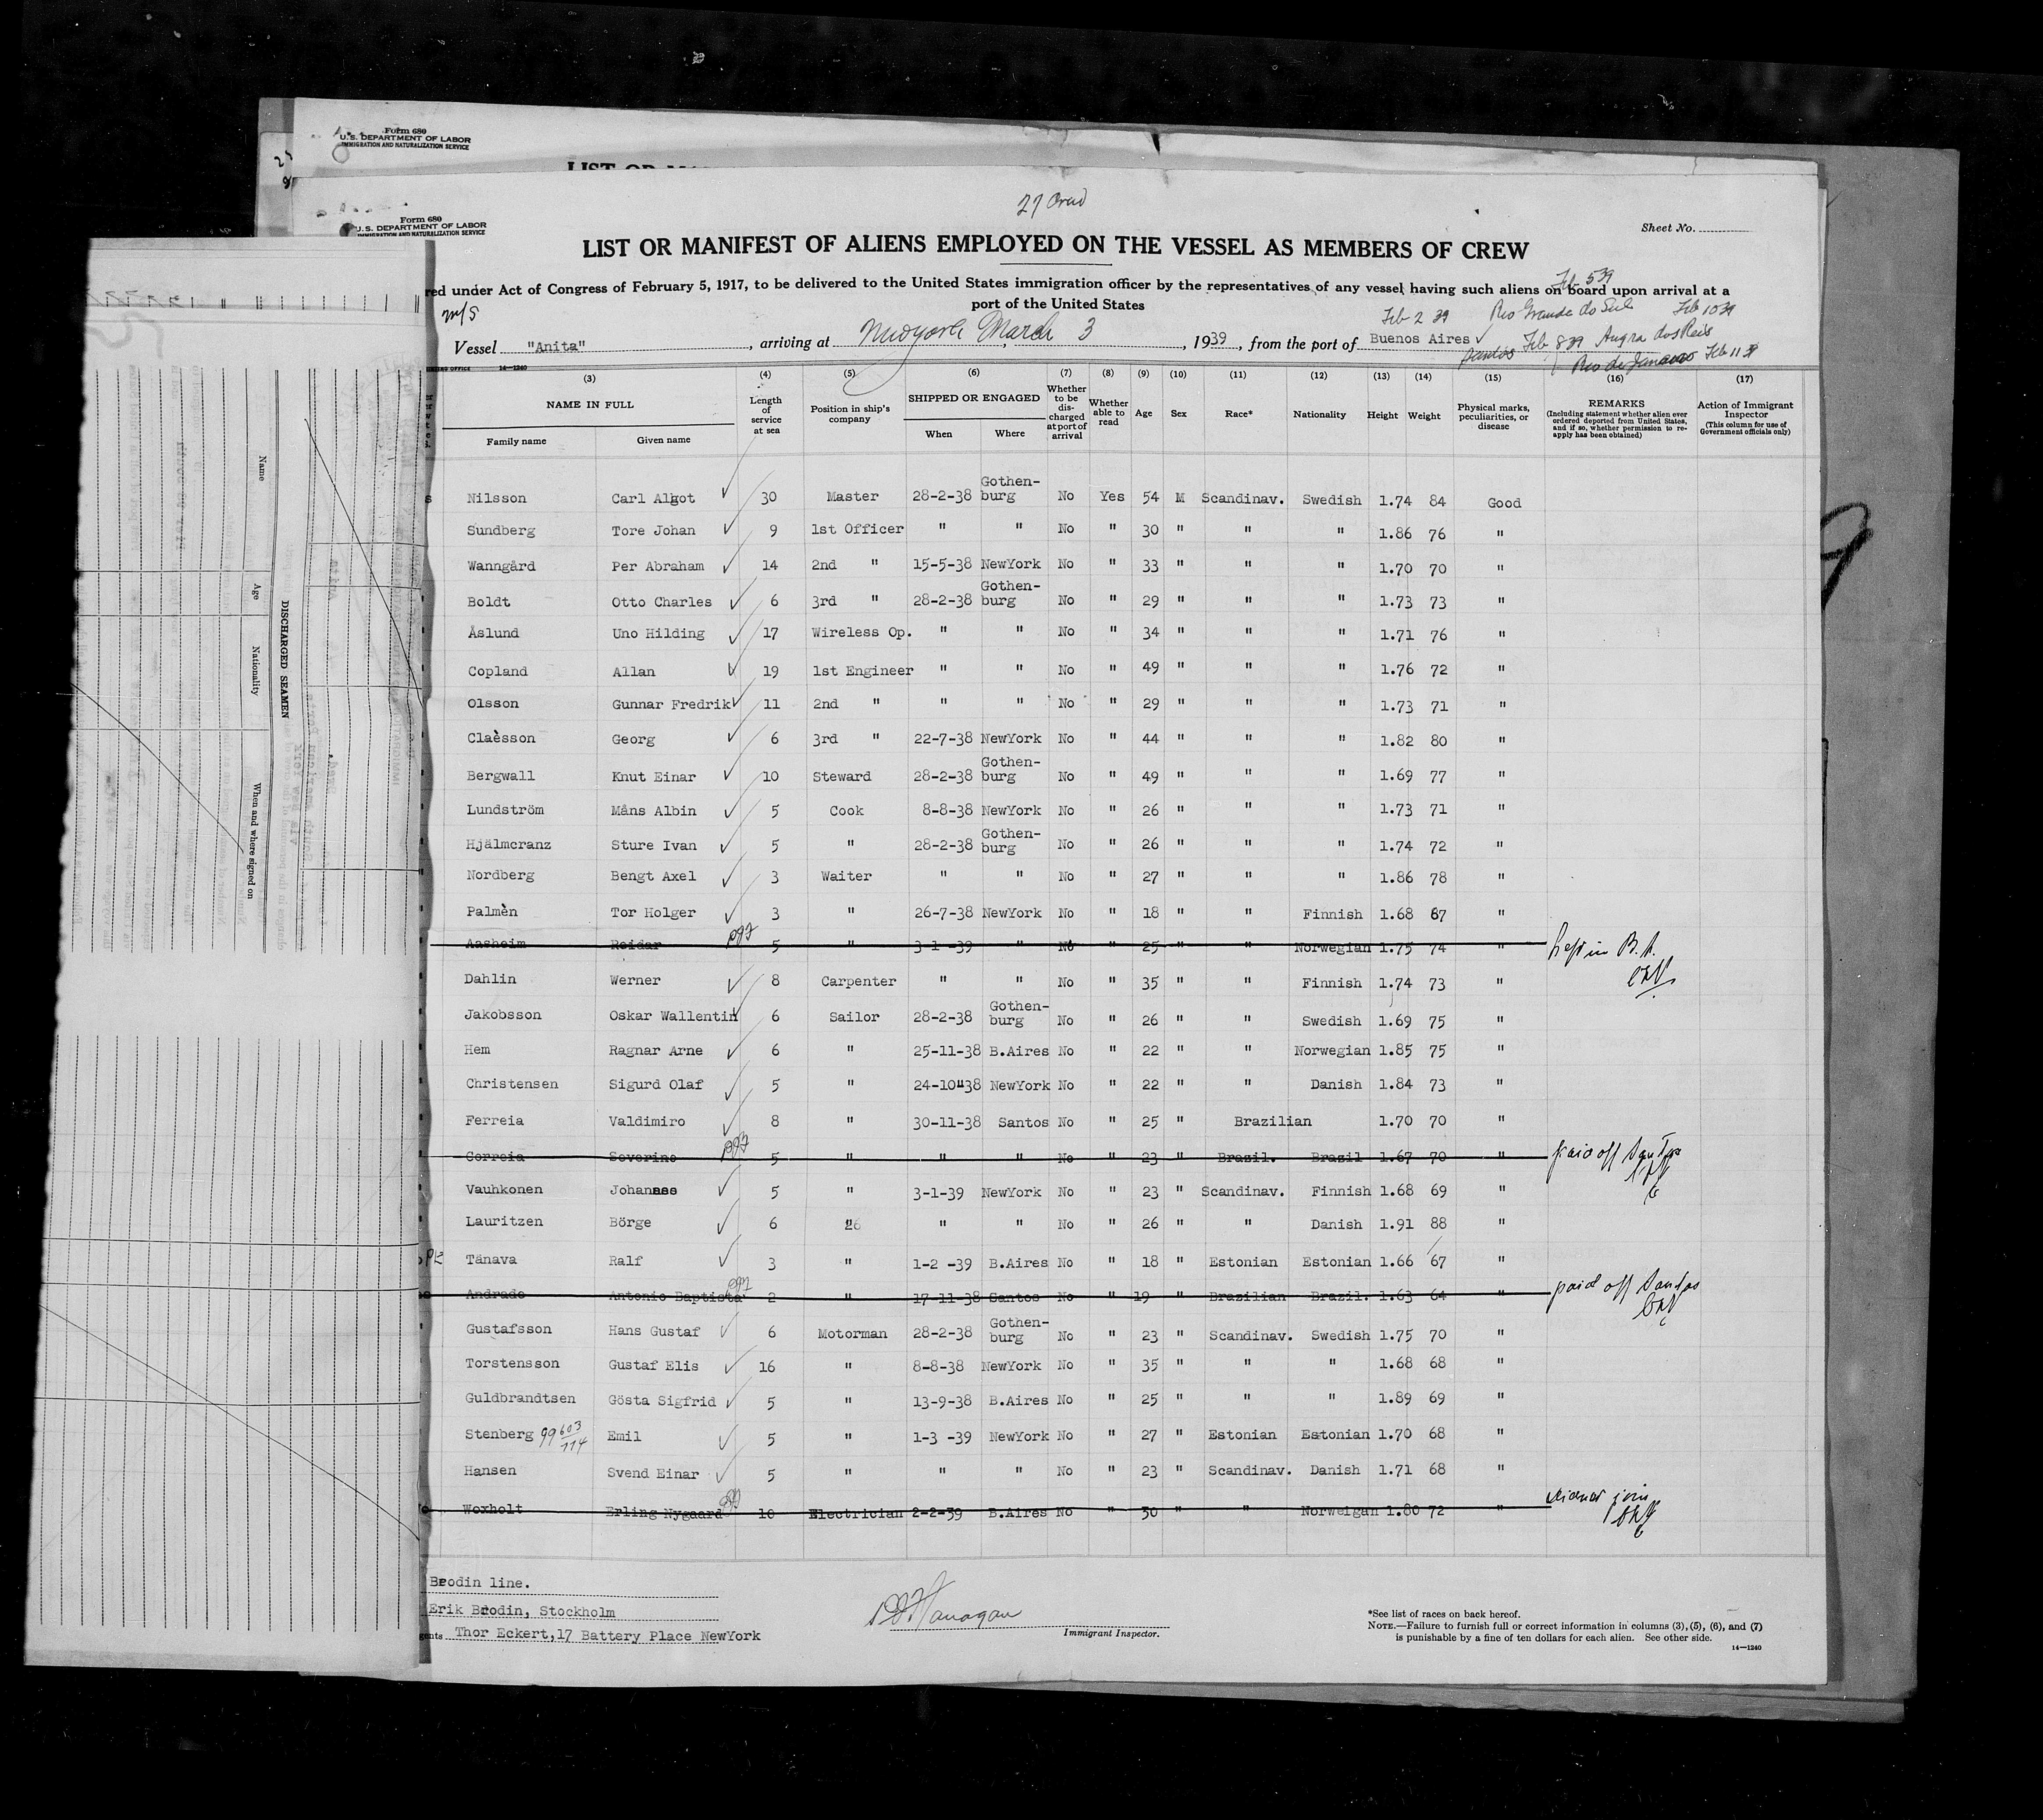 Form 680
U.S. DEPARTMENT OF LABOR
IMMIGRATION AND NATURALIZATION SERVICE
Form 680
U.S. DEPARTMENT OF LABOR
IMMIGRATION AND NATURALIZATION SERVICE
Sheet No.
LIST OR MANIFEST OF ALIENS EMPLOYED ON THE VESSEL AS MEMBERS OF CREW
red under Act of Congress of February 5, 1917, to be delivered to the United States immigration officer by the representatives of any vessel having such aliens on board upon arrival at a
port of the United States
Feb 5 39
Feb 2 39 Rio Grande do Sul Feb 10 39
m/s Vessel "Anita", arriving at New York March 3, 1939, from the port of Buenos Aires
Santos Feb 8 39 Angra dos Reis
Rio de Janeiro Feb 11 39
14—1240
(3) (4) (5) (6) (7) (8) (9) (10) (11) (12) (13) (14) (15) (16) (17)
NAME IN FULL Family name Given name Length of service at sea Position in ship's company SHIPPED OR ENGAGED When Where Whether to be discharged at port of arrival Whether able to read Age Sex Race* Nationality Height Weight Physical marks, peculiarities, or disease REMARKS (Including statement whether alien ever ordered deported from United States, and if so, whether permission to re-apply has been obtained) Action of Immigrant Inspector (This column for use of Government officials only)
Nilsson Carl Algot 30 Master 28-2-38 Gothen-burg No Yes 54 M Scandinav. Swedish 1.74 84 Good
Sundberg Tore Johan 9 1st Officer " " No " 30 " " " 1.86 76 "
Wanngård Per Abraham 14 2nd " 15-5-38 NewYork No " 33 " " " 1.70 70 "
Boldt Otto Charles 6 3rd " 28-2-38 Gothen-burg No " 29 " " " 1.73 73 "
Åslund Uno Hilding 17 Wireless Op. " " No " 34 " " " 1.71 76 "
Copland Allan 19 1st Engineer " " No " 49 " " " 1.76 72 "
Olsson Gunnar Fredrik 11 2nd " " " No " 29 " " " 1.73 71 "
Claèsson Georg 6 3rd " 22-7-38 NewYork No " 44 " " " 1.82 80 "
Bergwall Knut Einar 10 Steward 28-2-38 Gothen-burg No " 49 " " " 1.69 77 "
Lundström Måns Albin 5 Cook 8-8-38 NewYork No " 26 " " " 1.73 71 "
Hjälmcranz Sture Ivan 5 " 28-2-38 Gothen-burg No " 26 " " " 1.74 72 "
Nordberg Bengt Axel 3 Waiter " " No " 27 " " " 1.86 78 "
Palmèn Tor Holger 3 " 26-7-38 NewYork No " 18 " " Finnish 1.68 67 "
Aasheim Reidar 5 " 3-1-39 " No " 25 " " Norwegian 1.75 74 " Left in B.A.
Dahlin Werner 8 Carpenter " " No " 35 " " Finnish 1.74 73 "
Jakobsson Oskar Wallentin 6 Sailor 28-2-38 Gothen-burg No " 26 " " Swedish 1.69 75 "
Hem Ragnar Arne 6 " 25-11-38 B.Aires No " 22 " " Norwegian 1.85 75 "
Christensen Sigurd Olaf 5 " 24-10-38 NewYork No " 22 " " Danish 1.84 73 "
Ferreia Valdimiro 8 " 30-11-38 Santos No " 25 " Brazilian 1.70 70 "
Correia Severino 5 " " " No " 23 " Brazil. Brazil 1.67 70 " paid off Santos
Vauhkonen Johannes 5 " 3-1-39 NewYork No " 23 " Scandinav. Finnish 1.68 69 "
Lauritzen Börge 6 " " " No " 26 " " Danish 1.91 88 "
Tänava Ralf 3 " 1-2 -39 B.Aires No " 18 " Estonian Estonian 1.66 67 "
Andrade Antonio Baptista 2 " 17-11-38 Santos No " 19 " Brazilian Brazil. 1.63 64 " paid off Santos
Gustafsson Hans Gustaf 6 Motorman 28-2-38 Gothen-burg No " 23 " Scandinav. Swedish 1.75 70 "
Torstensson Gustaf Elis 16 " 8-8-38 NewYork No " 35 " " " 1.68 68 "
Guldbrandtsen Gösta Sigfrid 5 " 13-9-38 B.Aires No " 25 " " " 1.89 69 "
Stenberg 99 603/114 Emil 5 " 1-3 -39 NewYork No " 27 " Estonian Estonian 1.70 68 "
Hansen Svend Einar 5 " " " No " 23 " Scandinav. Danish 1.71 68 "
Woxholt Erling Nygaard 10 Electrician 2-2-39 B.Aires No " 50 " " Norweigan 1.80 72 " did not join
Brodin line.
Erik Brodin, Stockholm
gents Thor Eckert,17 Battery Place NewYork
Immigrant Inspector.
*See list of races on back hereof.
NOTE.—Failure to furnish full or correct information in columns (3), (5), (6), and (7)
is punishable by a fine of ten dollars for each alien. See other side.
14—1240
DISCHARGED SEAMEN
Name
Age
Nationality
When and where signed on